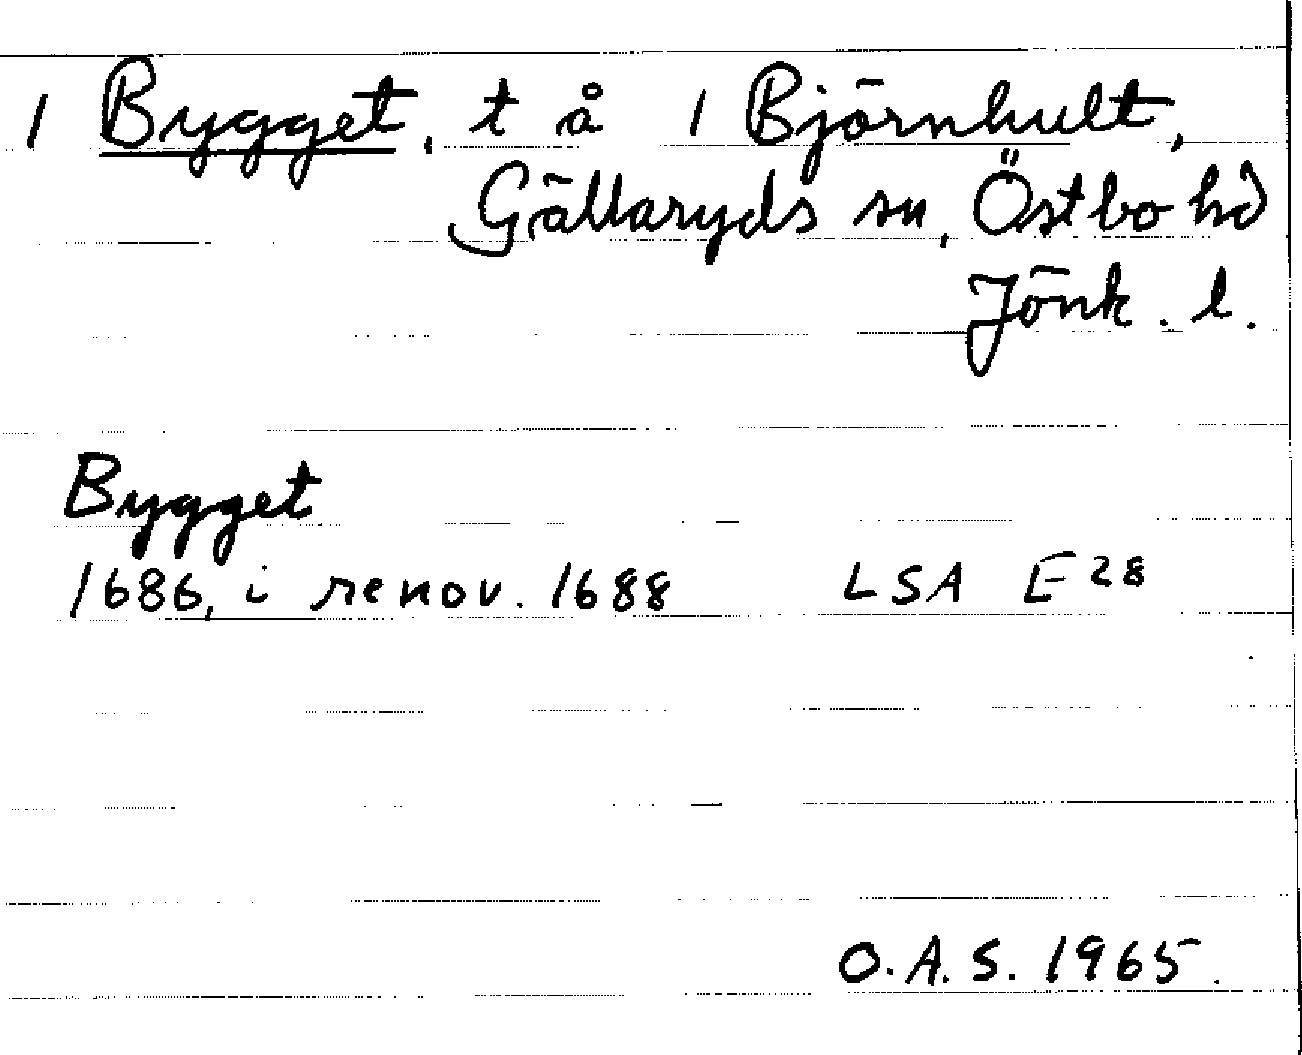 / Bygget, t å / Björnhult,
Gällaryds sn, Östbo hd
Jönk. l.
Bygget
1686, i renov. 1688 LSA E 28
O.A.S. 1965.